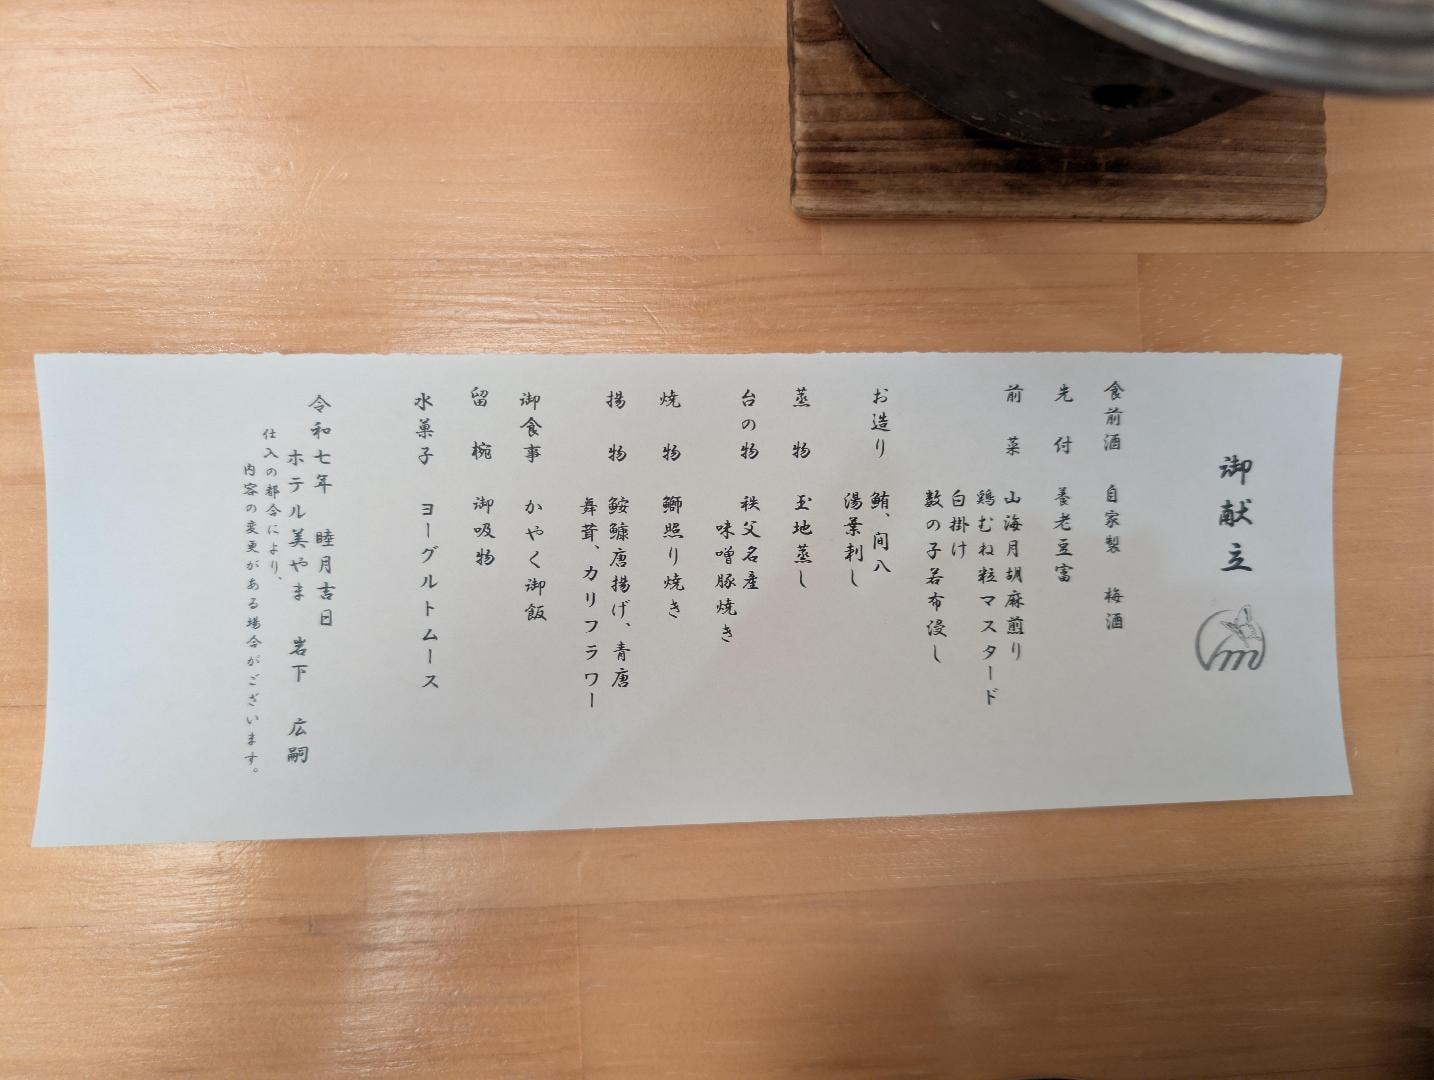 御献立
食前酒 自家製 梅酒
先 付 養老豆富
前 菜 山海月胡麻煎り
鶏むね粒マスタード
白掛け
数の子若布浸し
お造り 鮪、間八
湯葉刺し
蒸 物 玉地蒸し
台の物 秩父名産
味噌豚焼き
焼 物 鰤照り焼き
揚 物 鮟鱇唐揚げ、青唐
舞茸、カリフラワー
御食事 かやく御飯
留 椀 御吸物
水菓子 ヨーグルトムース
令和七年 睦月吉日
ホテル美やま 岩下 広嗣
仕入の都合により、
内容の変更がある場合がございます。